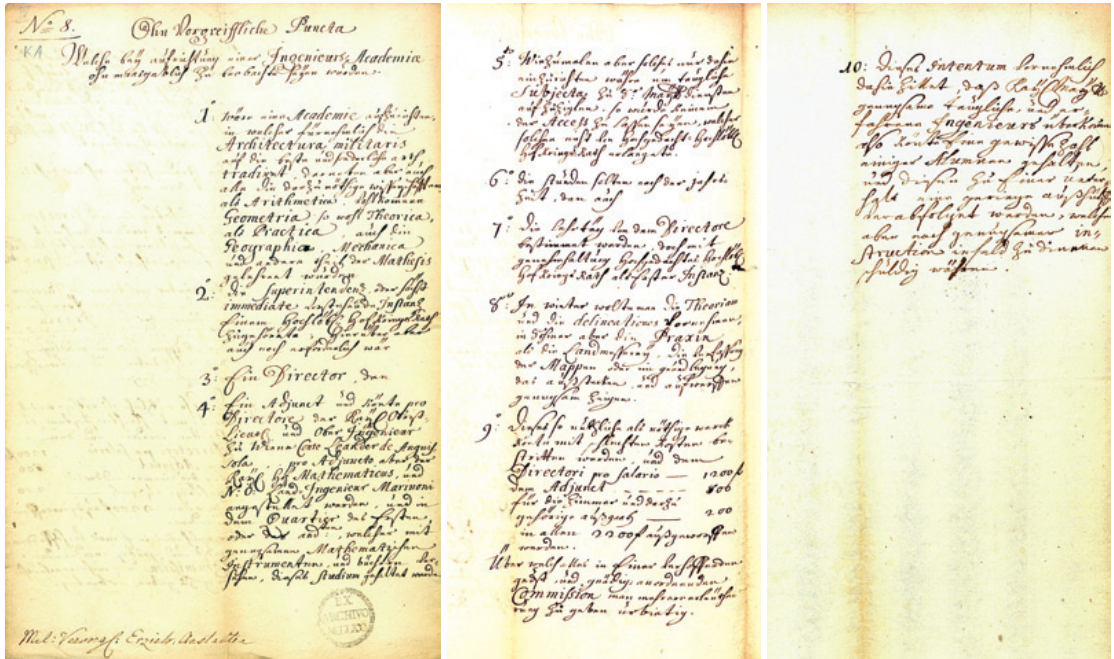 No 8.
Ohn Vorgreiffliche Puncta
KA
Welche bey aufrichtung einer Ingenieurs Academia
ohn zu werden.
1. Wäre eine Academie aufzurichten,
in welcher fürnehmlich die
Architectura militaris
auf die beste und art
tradiret, aber auch
alle die darzu nöthige wissenschafften
als Arithmetica,
Geometria so wohl Theorica,
als Practica auch die
Geographia, Mechanica
und andere theil der Mathesis
gelehrnet würden
2: die Superintendenz, der
immediate Instanz
Einem Hochlöbl: Hof Kriegs Rath
aber
auch noch erforderlich wär
3: Ein Director, dan
4: Ein Adjunct und könte pro
Directore, der Kay: Obrist
Lieut: und Ober Ingenieur
zu Wienn Leander de Anguis-
sola pro Adjuncto aber der
Kay: Mathematicus, und
N: Ö: Land Ingenieur Marinoni
angestellet werden, und in
dem Quartier des Ersten,
oder des and: welcher mit
genugsamen Mathematischen
Instrumenten, und büchern ver-
sehen, dieses Studium gehalten wurde
EX
ARCHIVO
Mil: Versorg: Erzieh. Anstalten
5: aber solches nur dahin
einzurichten wäre um taugliche
Subjecta zu May: diensten
so würde keinem
der Access zu lassen seyn, welcher
solchen nicht von Hochgedacht: Hochlöbl:
Hof Kriegs Rath erlanget.
6: die stunden solten nach der jahrs
Zeit, dan auch
7: die von dem Directore
bestimmet werden, doch mit
genehmhaltung Hochgedachtes Hochlöbl:
Hof Kriegs Rath als erster Instanz
8: In winter wolte man die Theoriam
und die delineationes Vornehmen,
in Sommer aber die Praxin
als die Landmesserey, die
der Mappen oder im
das ausstecken, und aufwerffen
genugsam zeigen.
9: dieses so nützliche als nöthige werck
könte mit schlechten kosten be-
stritten werden, und dem
Directori pro salario — 1200 f
dem Adjunct — 800
für die Zimmer und darzu
gehörige außgab — 200
in allen 2200 f außgeworffen
werden.
Über welch alles in Einer
und gnädig anordnenden
Commission man mehrere erleuthe-
rung zu geben urbietig.
10: dieses Intentum vornehmlich
dahin zihlet, daß Kay: May:
genugsame taugliche und er-
fahrene Ingenieurs überkomme
also könte Eine gewisse Zahl
einiger Alumnen gehalten
und diesen zu Einer unter-
halt eine geringe
verabfolget werden, welche
aber nach genugsamer in-
struction zu dienen
schuldig wären.